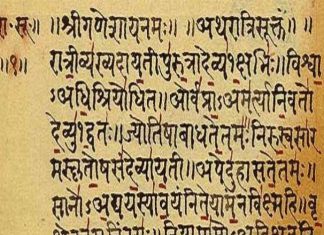 रा॰ सू॰ ॥श्रीगणेशायनमः॥ ॥अथरात्रिसूक्तं॥
॥१॥ रात्रीव्यख्यदायतीपुरुत्रादेव्य१क्षभिः॥विश्वा
ऽअधिश्रियोधित॥ओर्वप्राऽअमर्त्यानिवतो
देव्यु१द्वतः॥ज्योतिषाबाधतेतमः॥निरुस्वसार
मस्कृतोषसंदेव्यायती॥अपेदुहासतेतमः॥
सानोऽअद्ययस्यावयंनितेयामन्नविक्ष्महि॥वृ